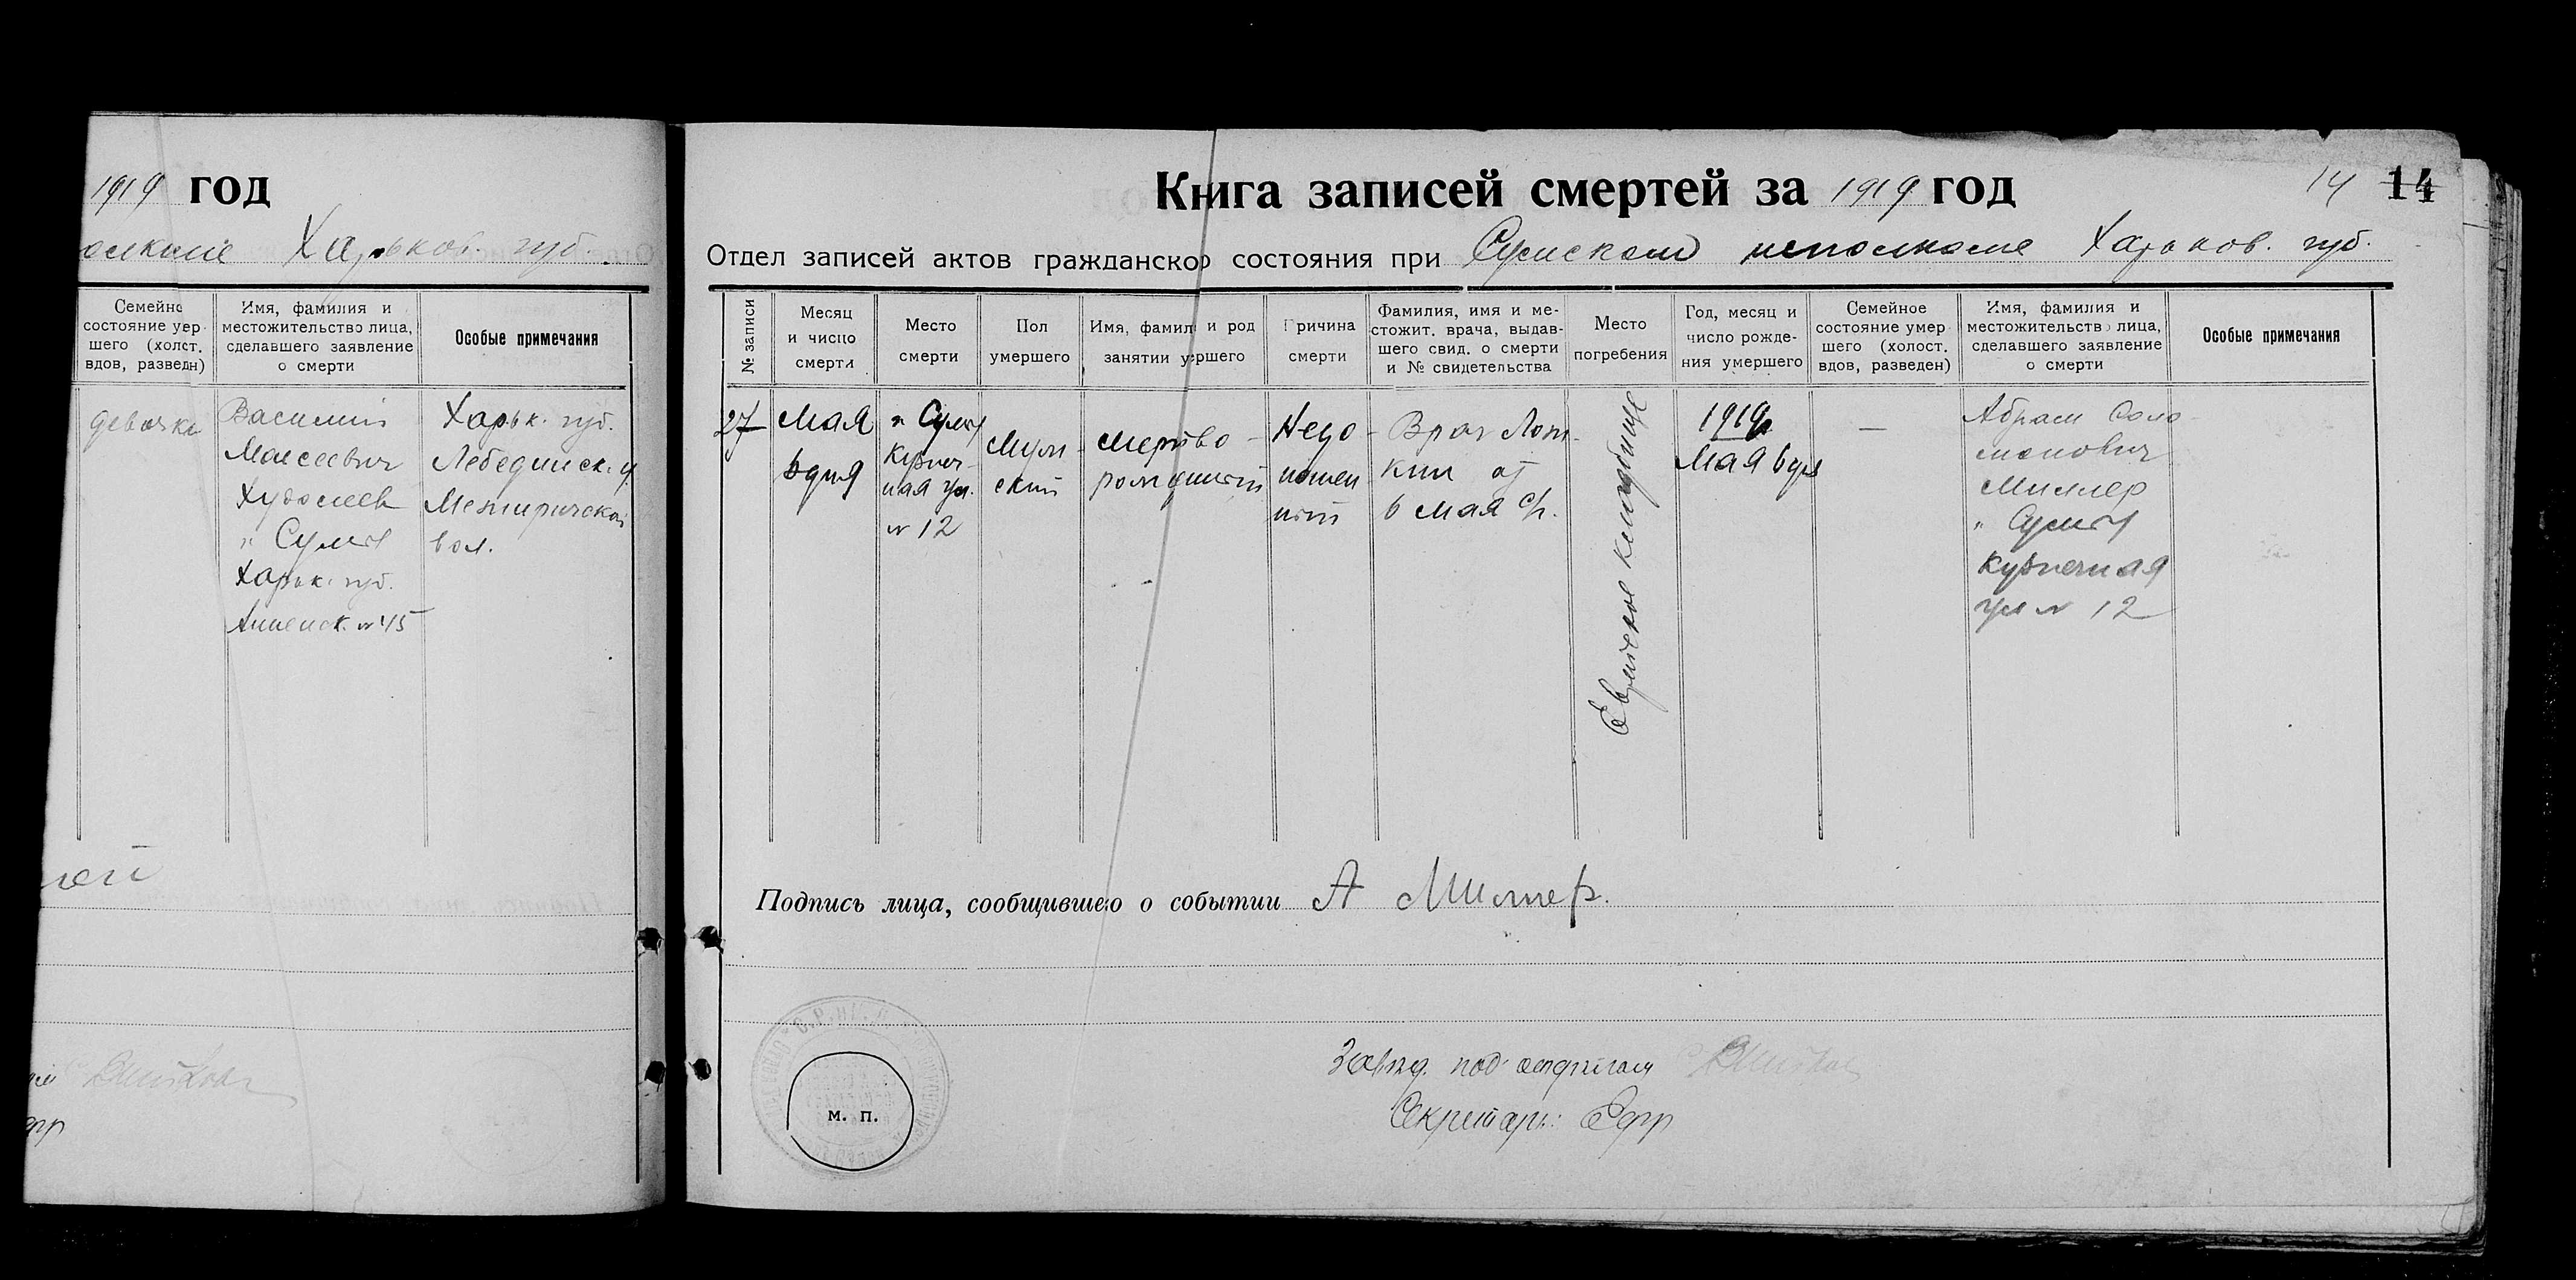 1919 год
Харьков. губ.
Семейно
состояние умер-
шего (холст.
вдов, разведн)
Имя, фамилия и
местожительство лица,
сделавшего заявление
о смерти
Особые примечания
девочка
Василий
Моисеевич
г. Сумы
Харьк. губ.
№ 45
Харьк. губ.
Лебединск. у
Межиричской
вол.
Книга записей смертей за 1919 год
14 14
Отдел записей актов гражданског состояния при Сумском исполкоме Харьков. губ.
№ записи
Месяц
и число
смерти
Место
смерти
Пол
умершего
Имя, фамил и род
занятии умршего
Причина
смерти
Фамилия, имя и ме-
стожит. врача, выдав-
шего свид. о смерти
и № свидетельства
Место
погребения
Год, месяц и
число рожде-
ния умершего
Семейное
состояние умер
шего (холост.
вдов, разведен)
Имя, фамилия и
местожительство лица,
сделавшего заявление
о смерти
Особые примечания
27
Мая
6 дня
г. Сумы
Кузнеч-
ная ул.
№ 12
Муж-
ский
мертво-
рожденный
Недо-
ношен
ный
Врач
кин от
6 мая с/г.
Еврейское кладбище
1919
Мая 6 дня
—
Абрам Соло
монович
Миллер
г. Сумы
Кузнечная
ул № 12
Подпись лица, сообщившего о событии А Миллер.
м. п.
Завед. под'отделом
Секретарь: